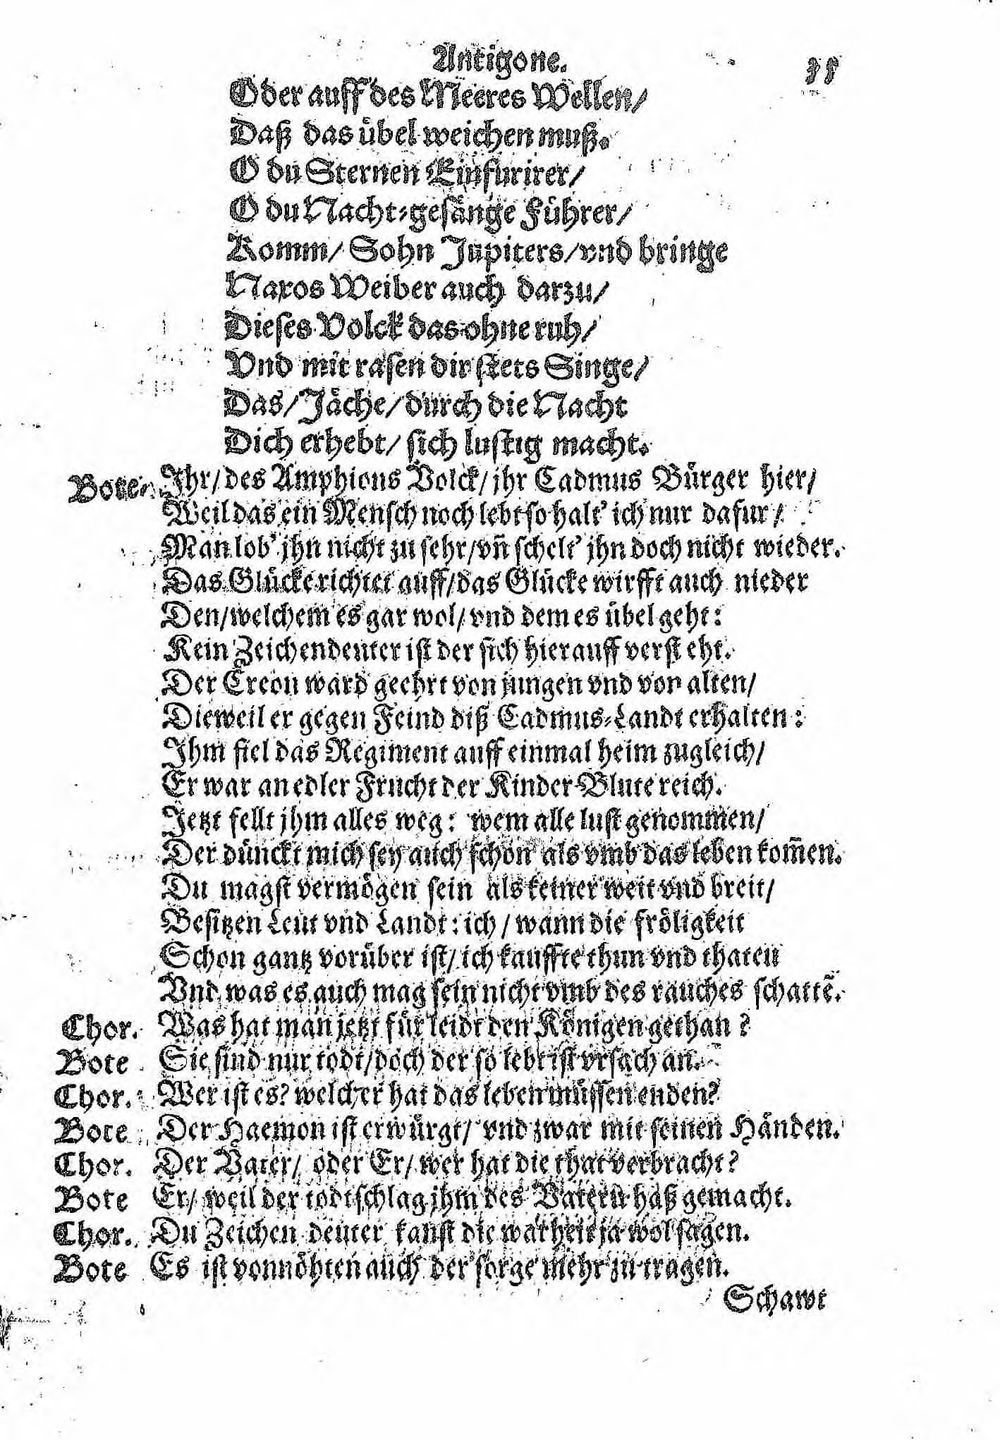 Antigone. 35
Oder auff des Meeres Wellen/
Daß das übel weichen muß.
O du Sternen Einfürirer/
O du Nacht-gesänge Führer/
Komm/ Sohn Jupiters/ vnd bringe
Naxos Weiber auch darzu/
Dieses Volck das ohne ruh/
Vnd mit rasen dir stets Singe/
Das/ Jäche/ durch die Nacht
Dich erhebt/ sich lustig macht.
Bote. Ihr/ des Amphions Volck/ jhr Cadmus Bürger hier/
Weil das ein Mensch noch lebt so halt' ich nur dafur/
Man lob' jhn nicht zu sehr/ vñ schelt' jhn doch nicht wieder.
Das Glücke richtet auff/ das Glücke wirfft auch nieder
Den/ welchem es gar wol/ vnd dem es übel geht:
Kein Zeichendeuter ist der sich hierauff versteht.
Der Creon ward geehrt von jungen vnd von alten/
Dieweil er gegen Feind diß Cadmus-Landt erhalten:
Ihm fiel das Regiment auff einmal heim zugleich/
Er war an edler Frucht der Kinder-Blute reich.
Jetzt fellt jhm alles weg: wem alle lust genommen/
Der dünckt mich sey auch schon als vmb das leben kom̃en.
Du magst vermögen sein als keiner weit vnd breit/
Besitzen Leut vnd Landt: ich/ wann die fröligkeit
Schon gantz vorüber ist/ ich kauffte thun vnd thaten
Vnd was es auch mag sein nicht vmb des rauches schattẽ.
Chor. Was hat man jetzt für leidt den Königen gethan?
Bote Sie sind nur todt/ doch der so lebt ist vrsach an.
Chor. Wer ist es? welcher hat das leben müssen enden?
Bote Der Haemon ist erwürgt/ vnd zwar mit seinen Händen.
Chor. Der Vater/ oder Er/ wer hat die that verbracht?
Bote Er/ weil der todtschlag jhm des Vatern haß gemacht.
Chor. Du Zeichen deuter kanst die warheit ja wol sagen.
Bote Es ist vonnöhten auch der sorge mehr zu tragen.
Schawt